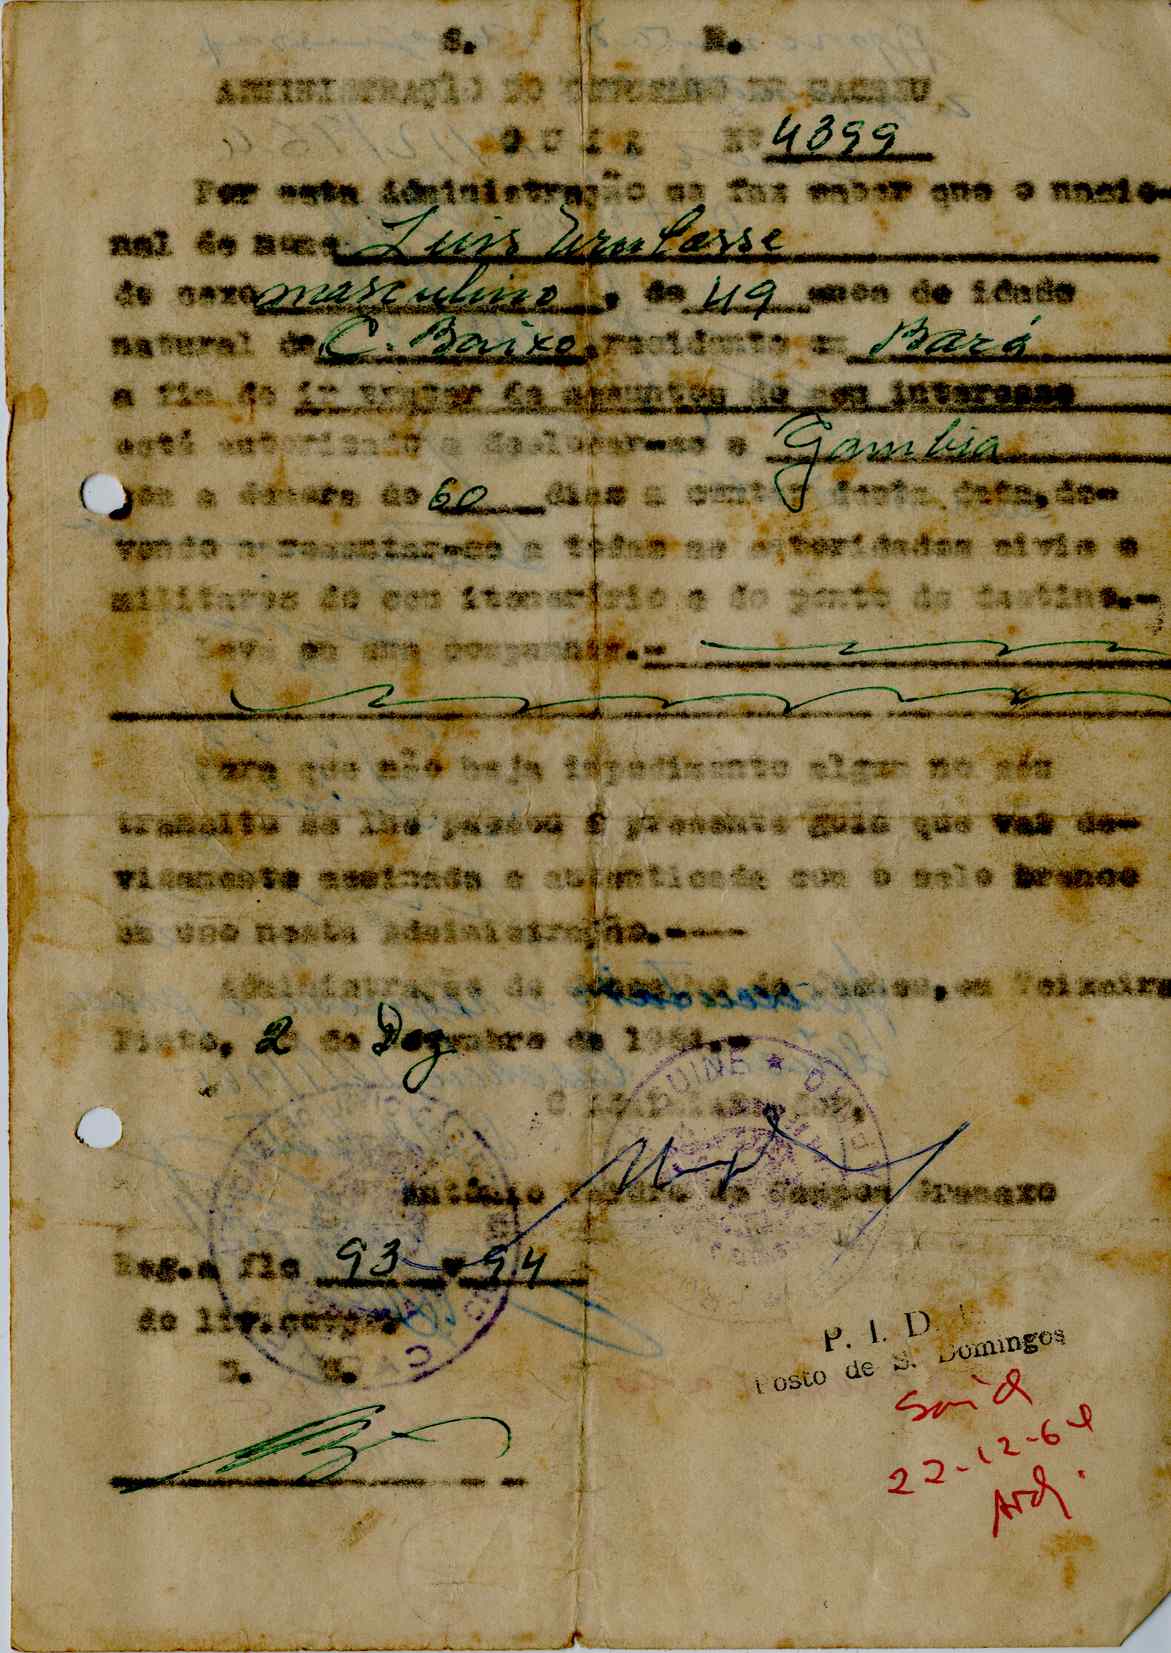 S. R.
ADMINISTRAÇÃO DO CONCELHO DE CACHEU
G U I A Nº 4399
Por esta Administração se faz saber que o nacio-
nal de nome Luis
do sexo masculino, de 49 anos de idade
natural de C. Baixo, residente em Bará
a fim de ir tratar de assuntos do seu interesse
está autorizado a deslocar-se a Gambia
com a demora de 60 dias a contar desta data, de-
vendo apresentar-se a todas as autoridades civis e
militares do seu itenerário e do ponto de destino.-
Leva em sua companhia.-
Para que não haja impedimento algum no seu
transito se lhe passou a presente guia que vai de-
vidamente assinada e autenticada com o selo branco
em uso nesta Administração.----
Administração do Concelho de Cacheu, em Teixeira
Pinto, 2 de Dez de 1964.-
O Administrador,
António de Campos
Reg.a fls 93 e 94
do liv.comp.
GUINÉ
P. I. D.
Posto de S. Domingos
Said
22-12-64